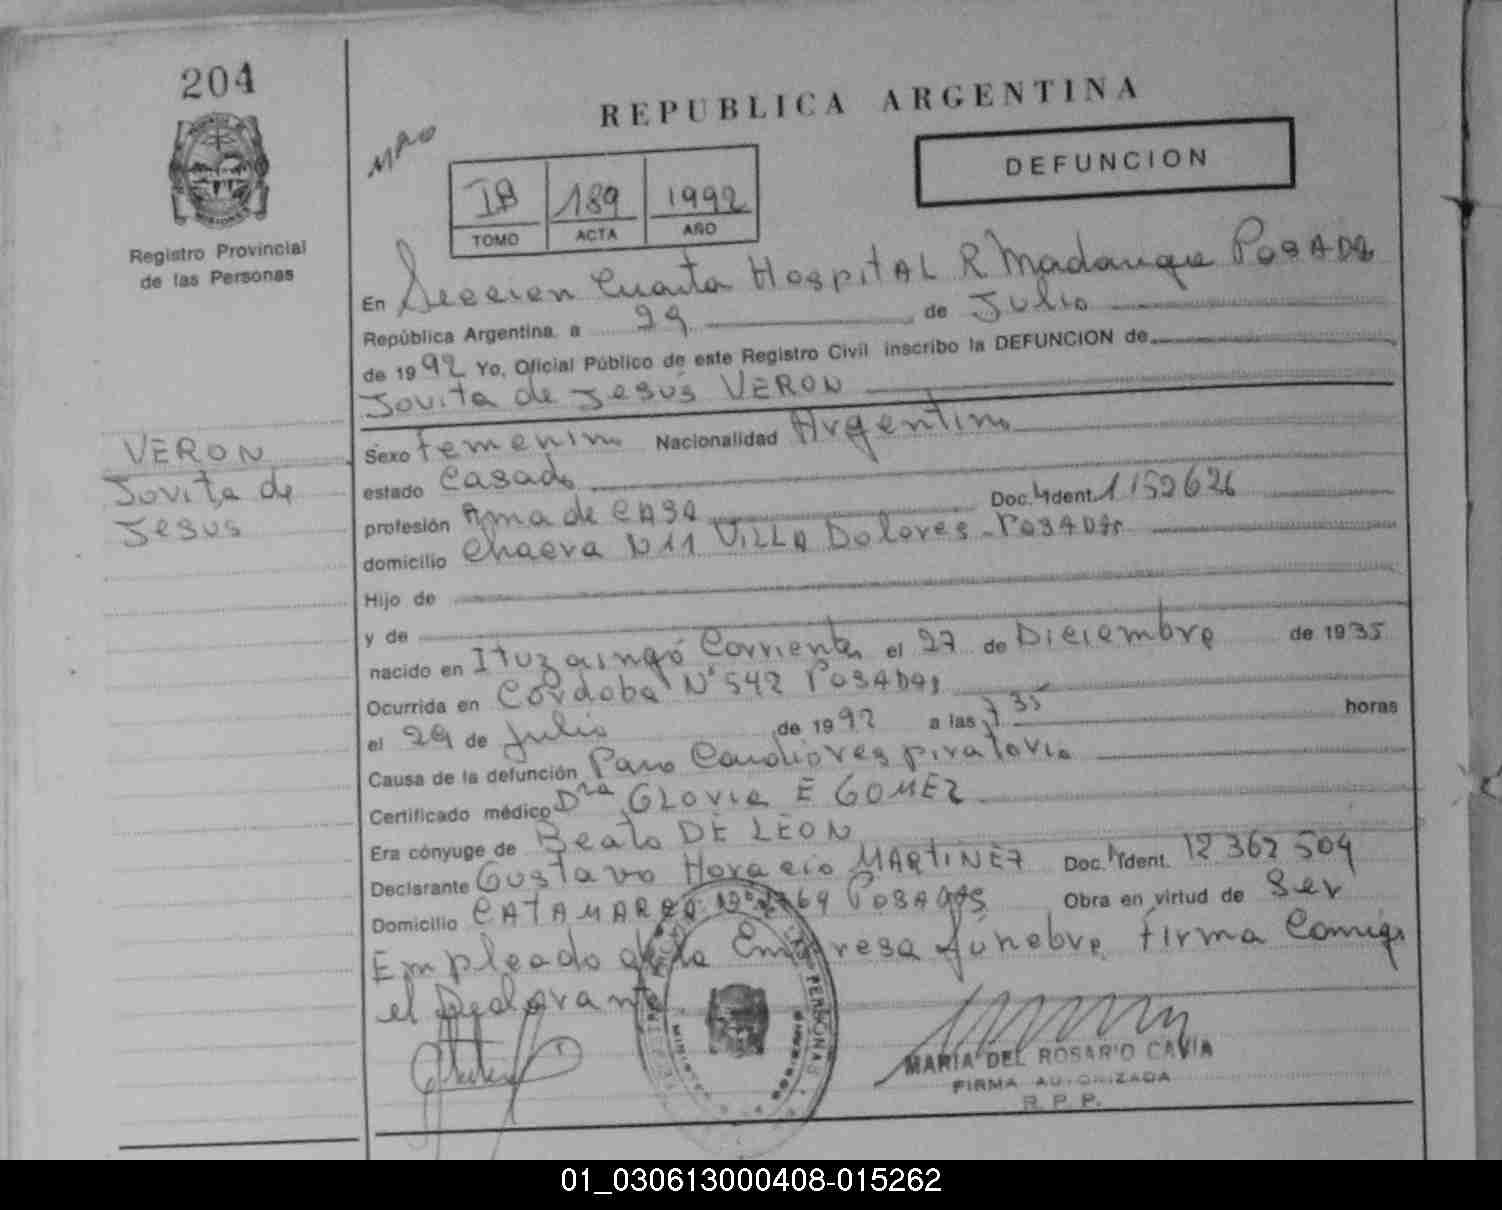 204
Registro Provincial
de las Personas
REPUBLICA ARGENTINA
DEFUNCION
IB 189 1992
TOMO ACTA AÑO
En Seccion Cuarta Hospital R Madariaga POSADAS
República Argentina, a 29 de Julio
de 1992 Yo, Oficial Público de este Registro Civil inscribo la DEFUNCION de
Jovita de Jesús VERON
VERON
Jovita de
Jesus
Sexo femenino Nacionalidad Argentina
estado Casada
profesión Ama de CASA Doc. Ident. 1152626
domicilio Chacra N 11 VILLA Dolores - POSADAS
Hijo de
y de
nacido en Ituzaingó Corrientes el 27 de Diciembre de 1935
Ocurrida en Córdoba Nº 542 POSADAS
el 29 de Julio de 1992 a las 7 35 horas
Causa de la defunción Paro Cardiorespiratorio
Certificado médico Dra GLORIA E GOMEZ
Era cónyuge de Beato DE LEON
Declarante Gustavo Horacio MARTINEZ Doc. Ident. 12 362 504
Domicilio CATAMARCA POSADAS Obra en virtud de Ser
Empleado de la Empresa fúnebre firma Conmigo
el Declarante
MARIA DEL ROSARIO CAVIA
FIRMA AUTORIZADA
R. P. P.
01_030613000408-015262